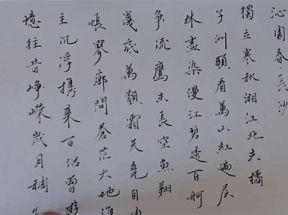 沁園春長沙
獨立寒秋湘江北去橘
子洲頭看萬山紅遍層
林盡染漫江碧透百舸
爭流鷹击長空魚翔
淺底萬類霜天競自由
悵寥廓問蒼茫大地誰
主沉浮攜來百侶曾遊
憶往昔崢嶸歲月稠